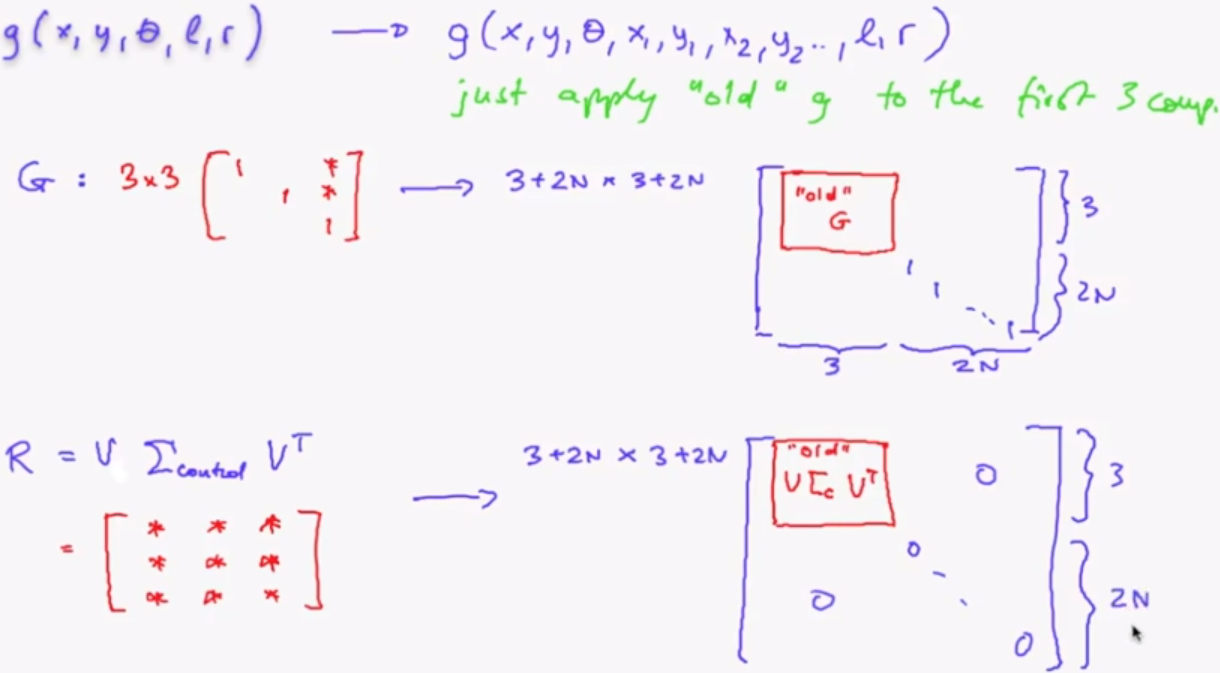 g(x, y, θ, l, r) → g(x, y, θ, x₁, y₁, x₂, y₂ .., l, r)
just apply "old" g to the first 3 comp.
G : 3×3 [ 1 * → 3+2N × 3+2N [ "old" ] } 3
1 *
1 ] G
1
1 } 2N
1
3 2N
R = V Σcontrol Vᵀ → 3+2N × 3+2N [ "old" ] } 3
V Σc Vᵀ 0
= [ * * *
* * * 0
* * * ] 0 } 2N
0